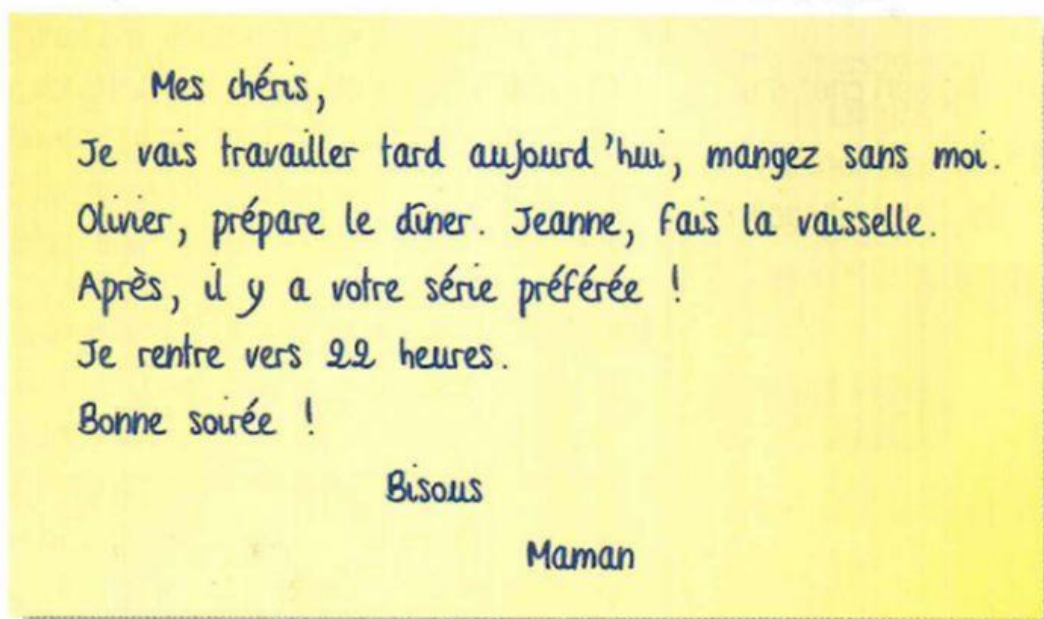 Mes chéris,
Je vais travailler tard aujourd'hui, mangez sans moi.
Olivier, prépare le dîner. Jeanne, fais la vaisselle.
Après, il y a votre série préférée !
Je rentre vers 22 heures.
Bonne soirée !
Bisous
Maman